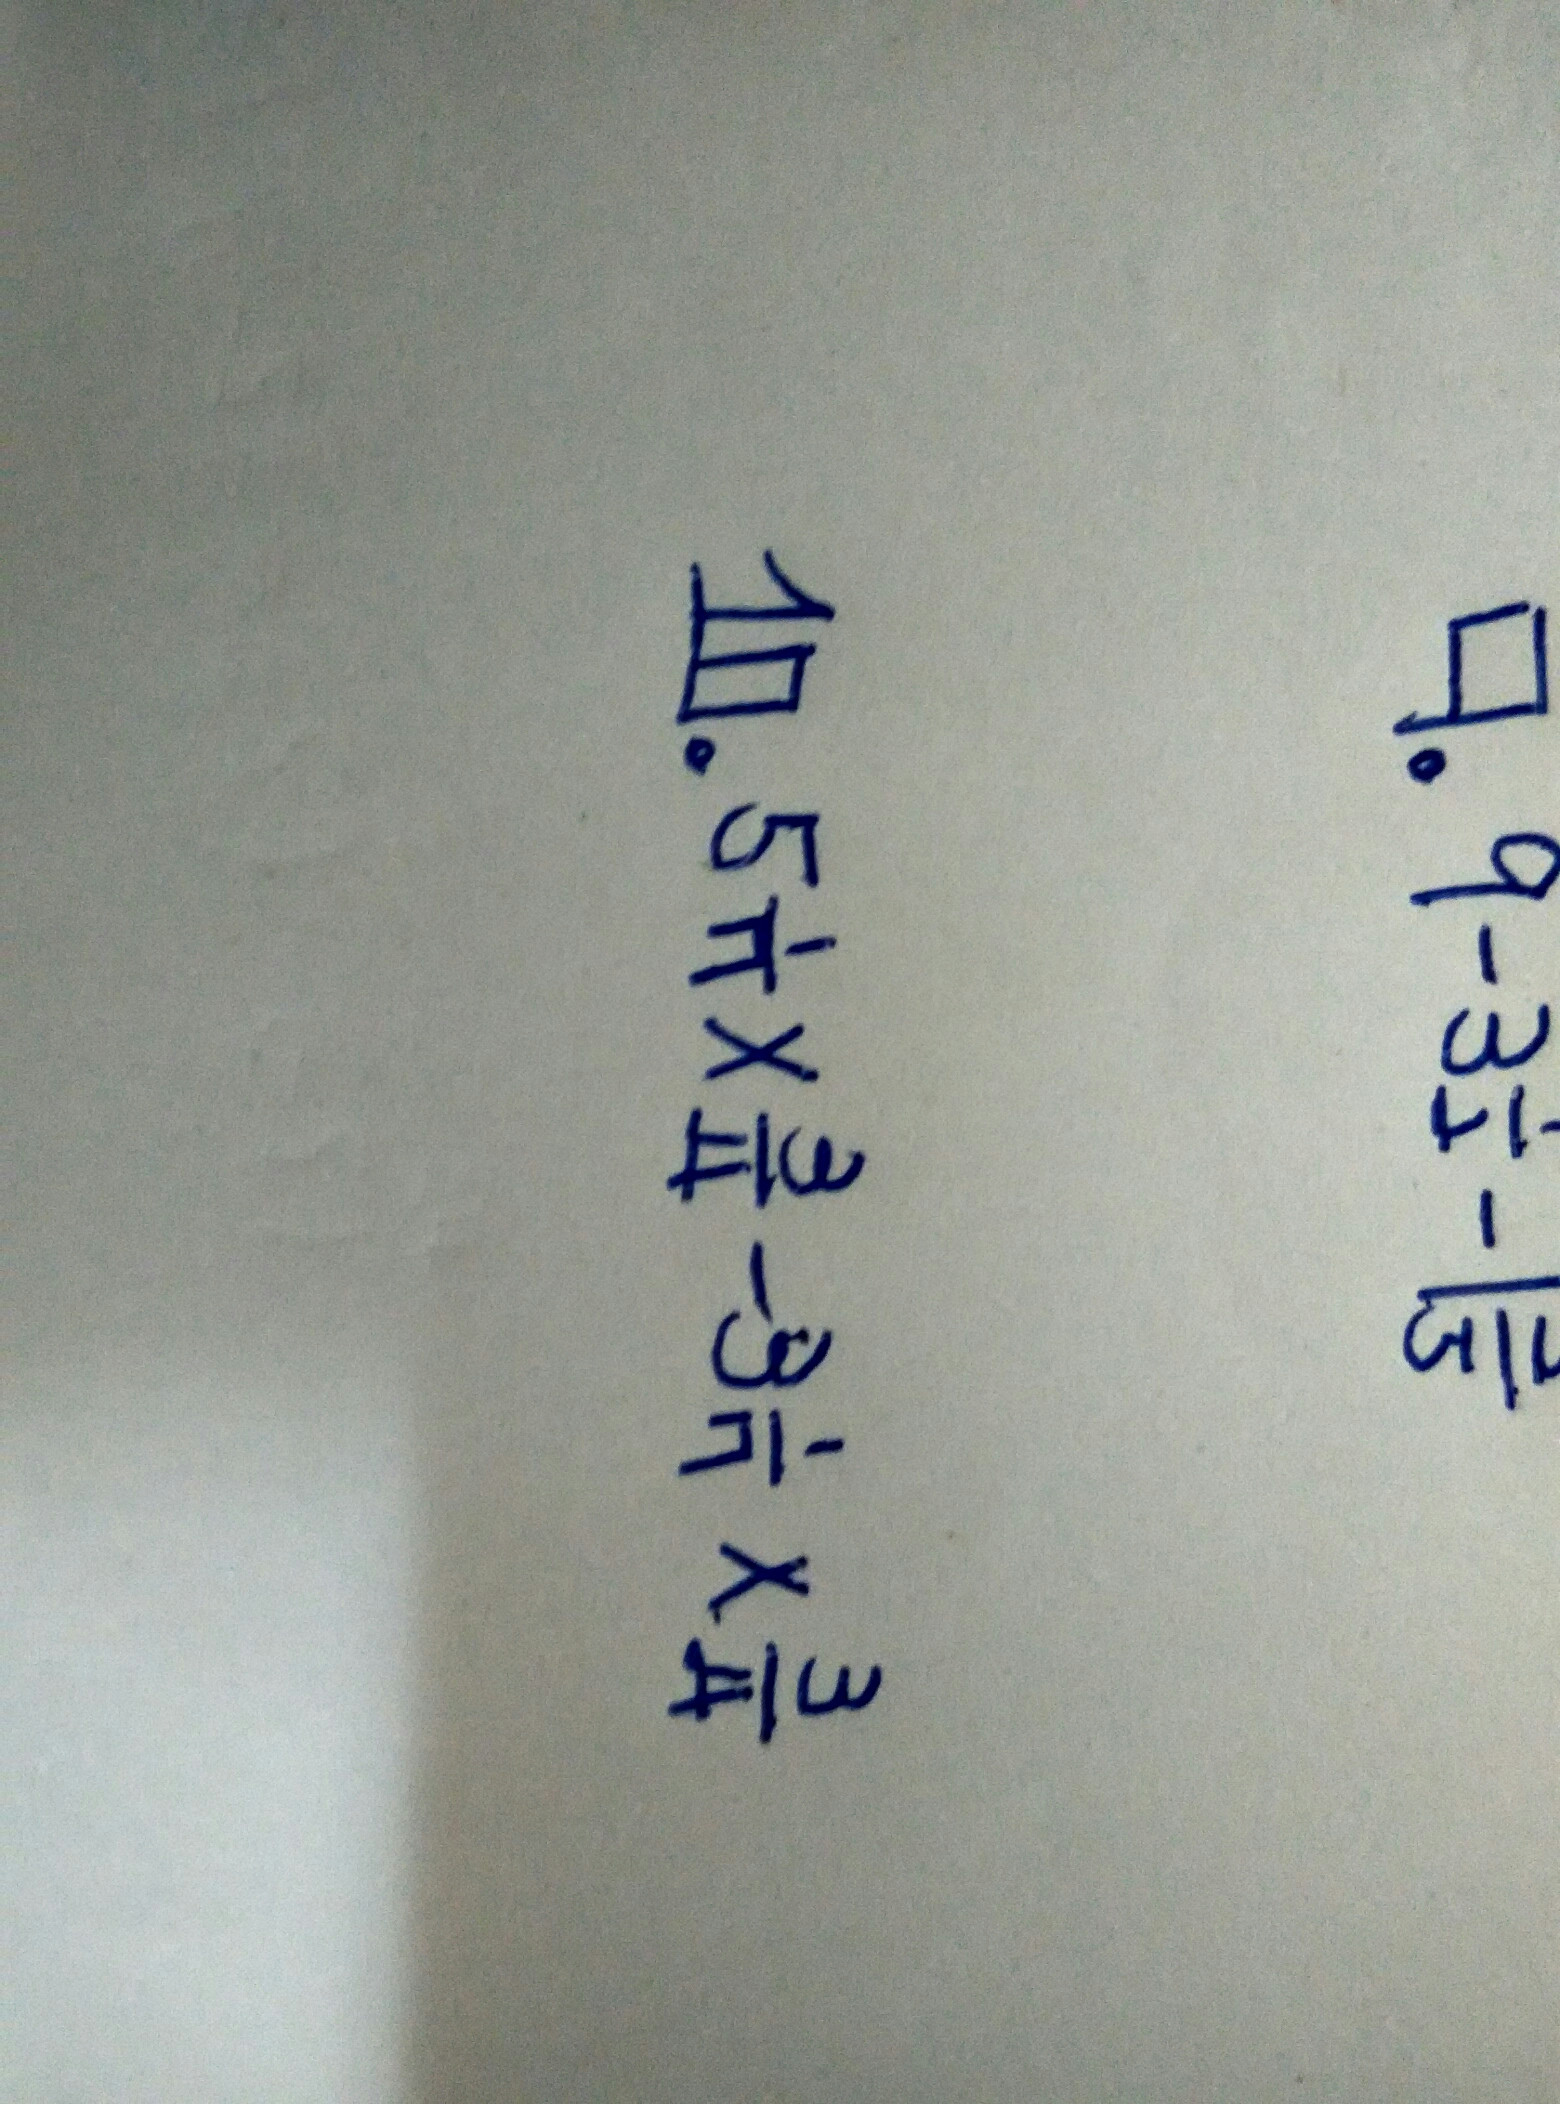 9. 9 - 3 1/2 - 1
10. 5 1/7 × 3/4 - 3 1/7 × 3/4